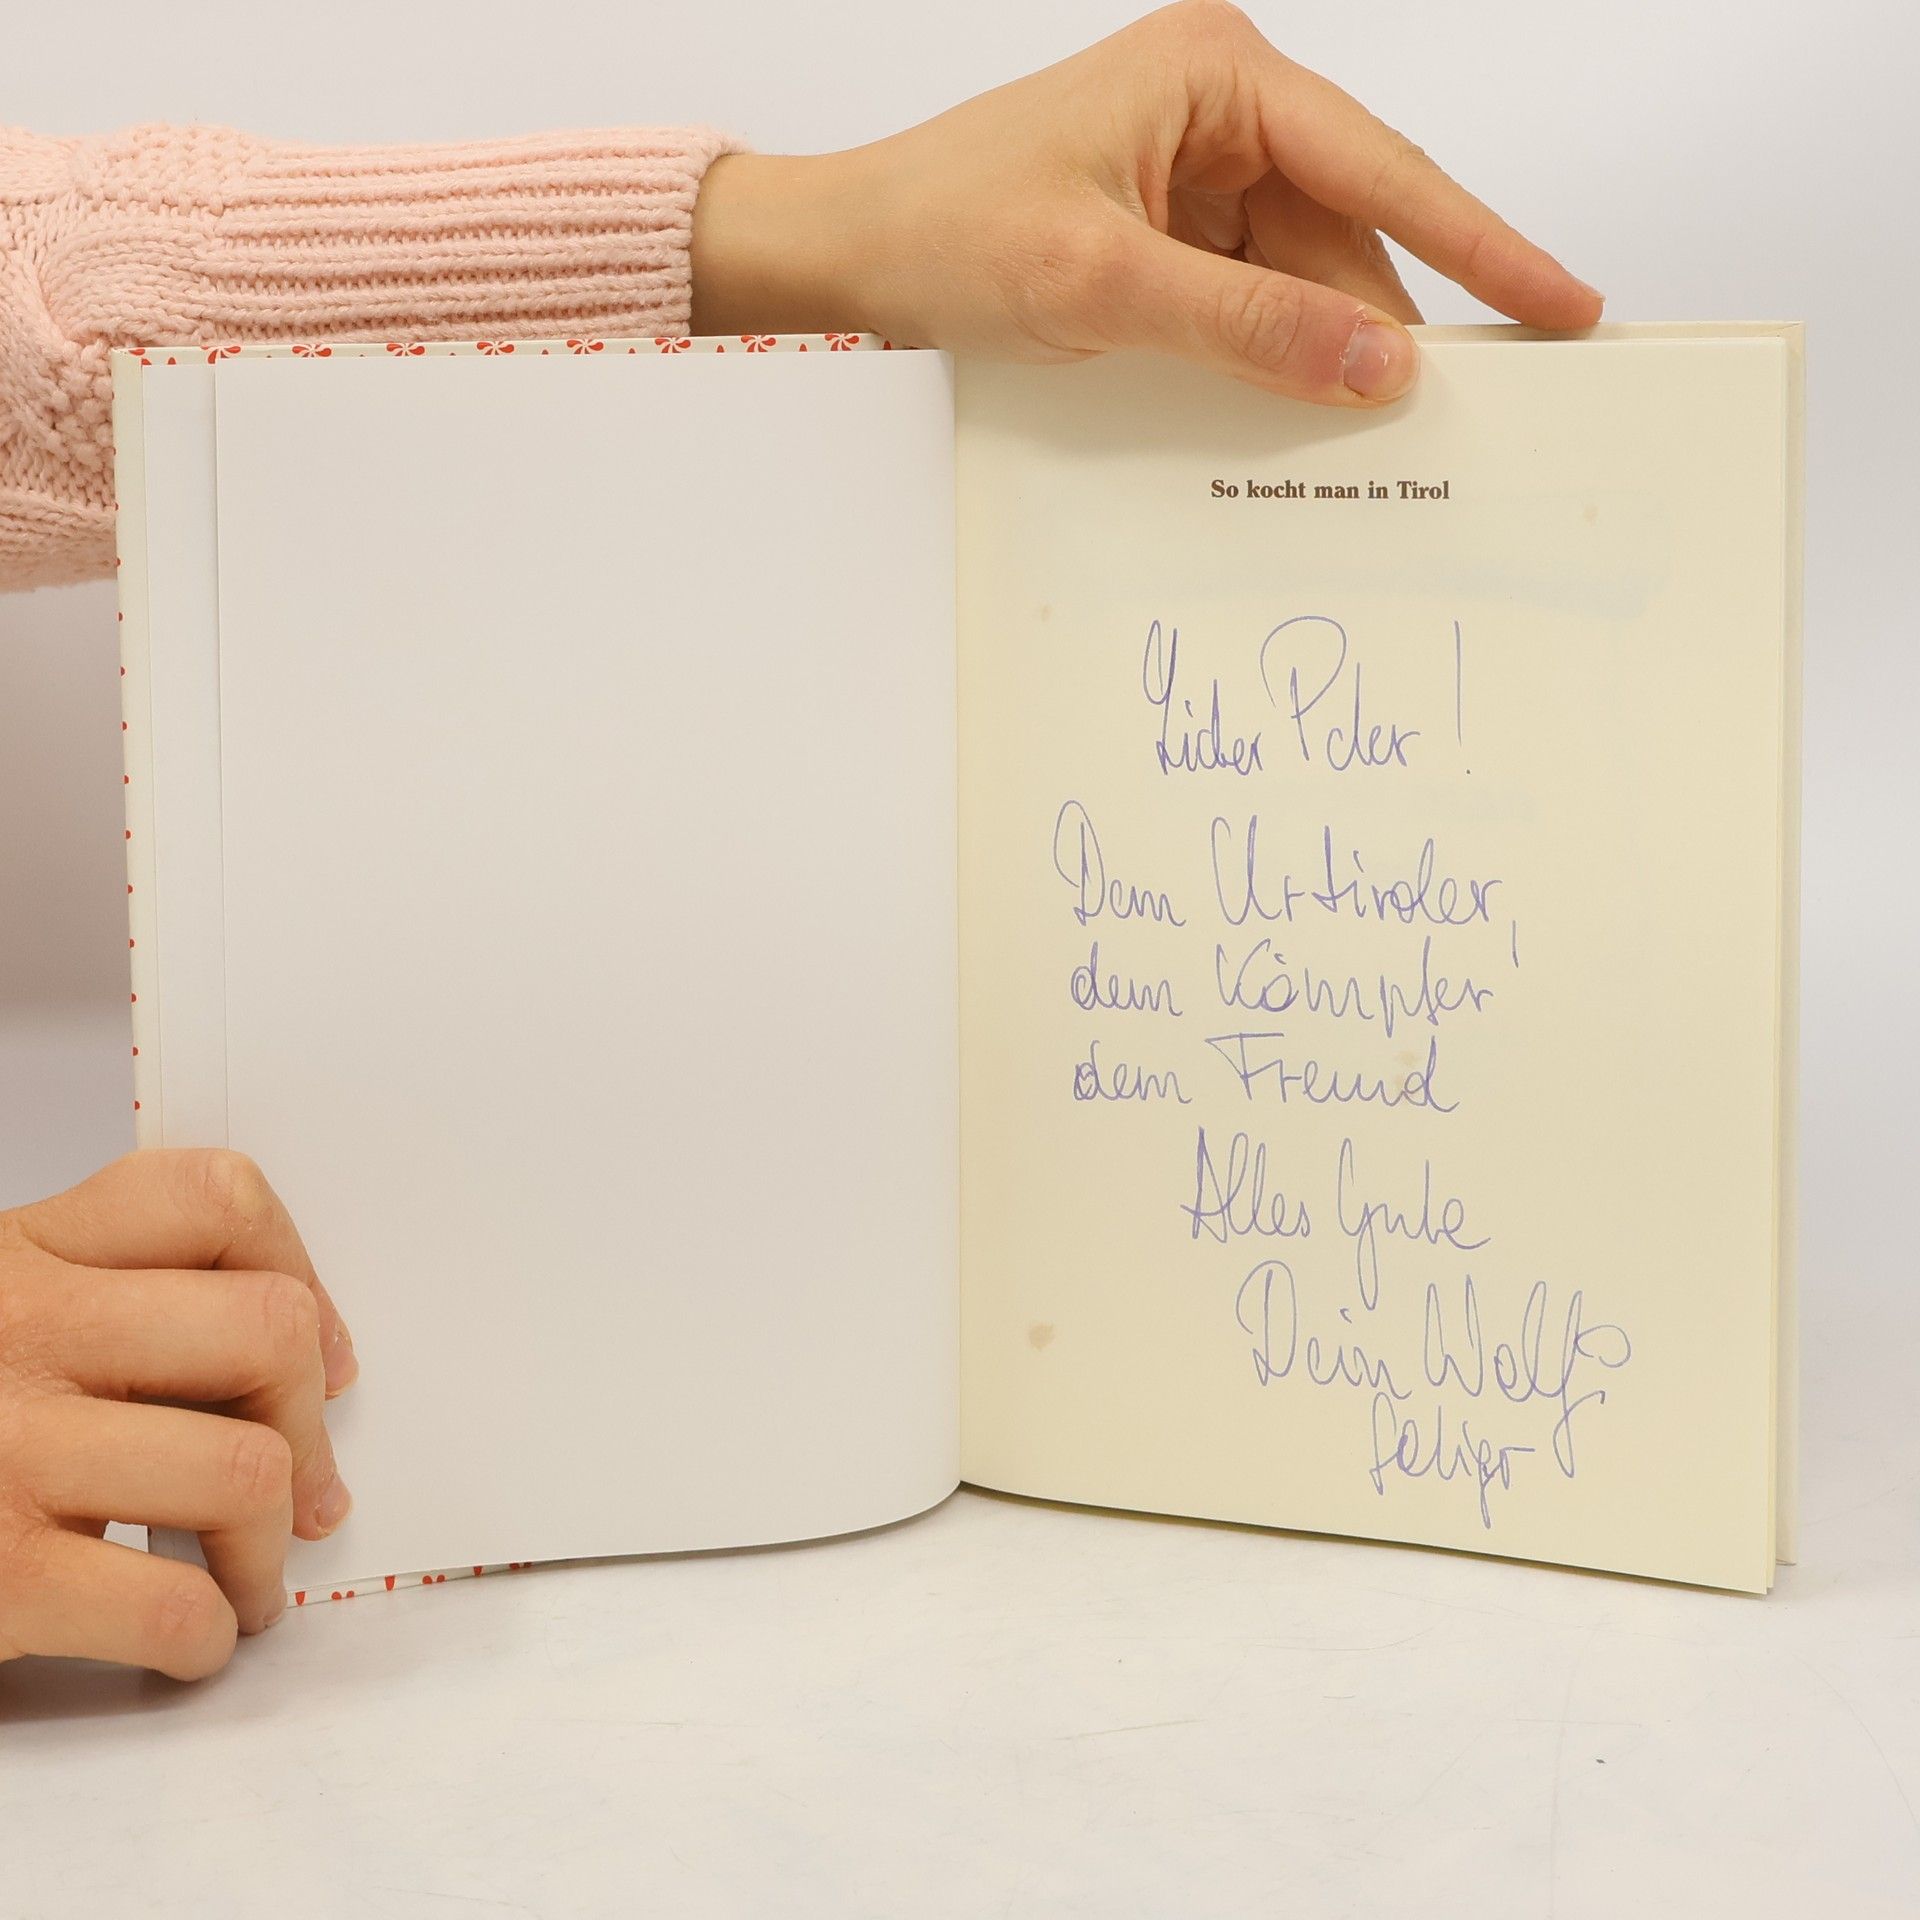 So kocht man in Tirol
Lieber Peter!
Dem Urtiroler,
dem Kämpfer,
dem Freund
Alles Gute
Dein Wolf